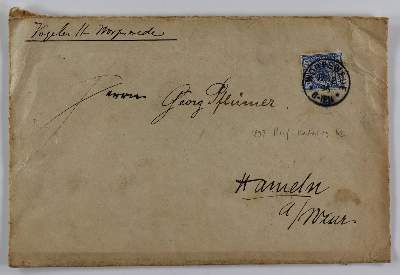 Vogeler H Worpswede
Herrn Georg Pflümer.
WORPSWEDE
Hameln
a/Weser